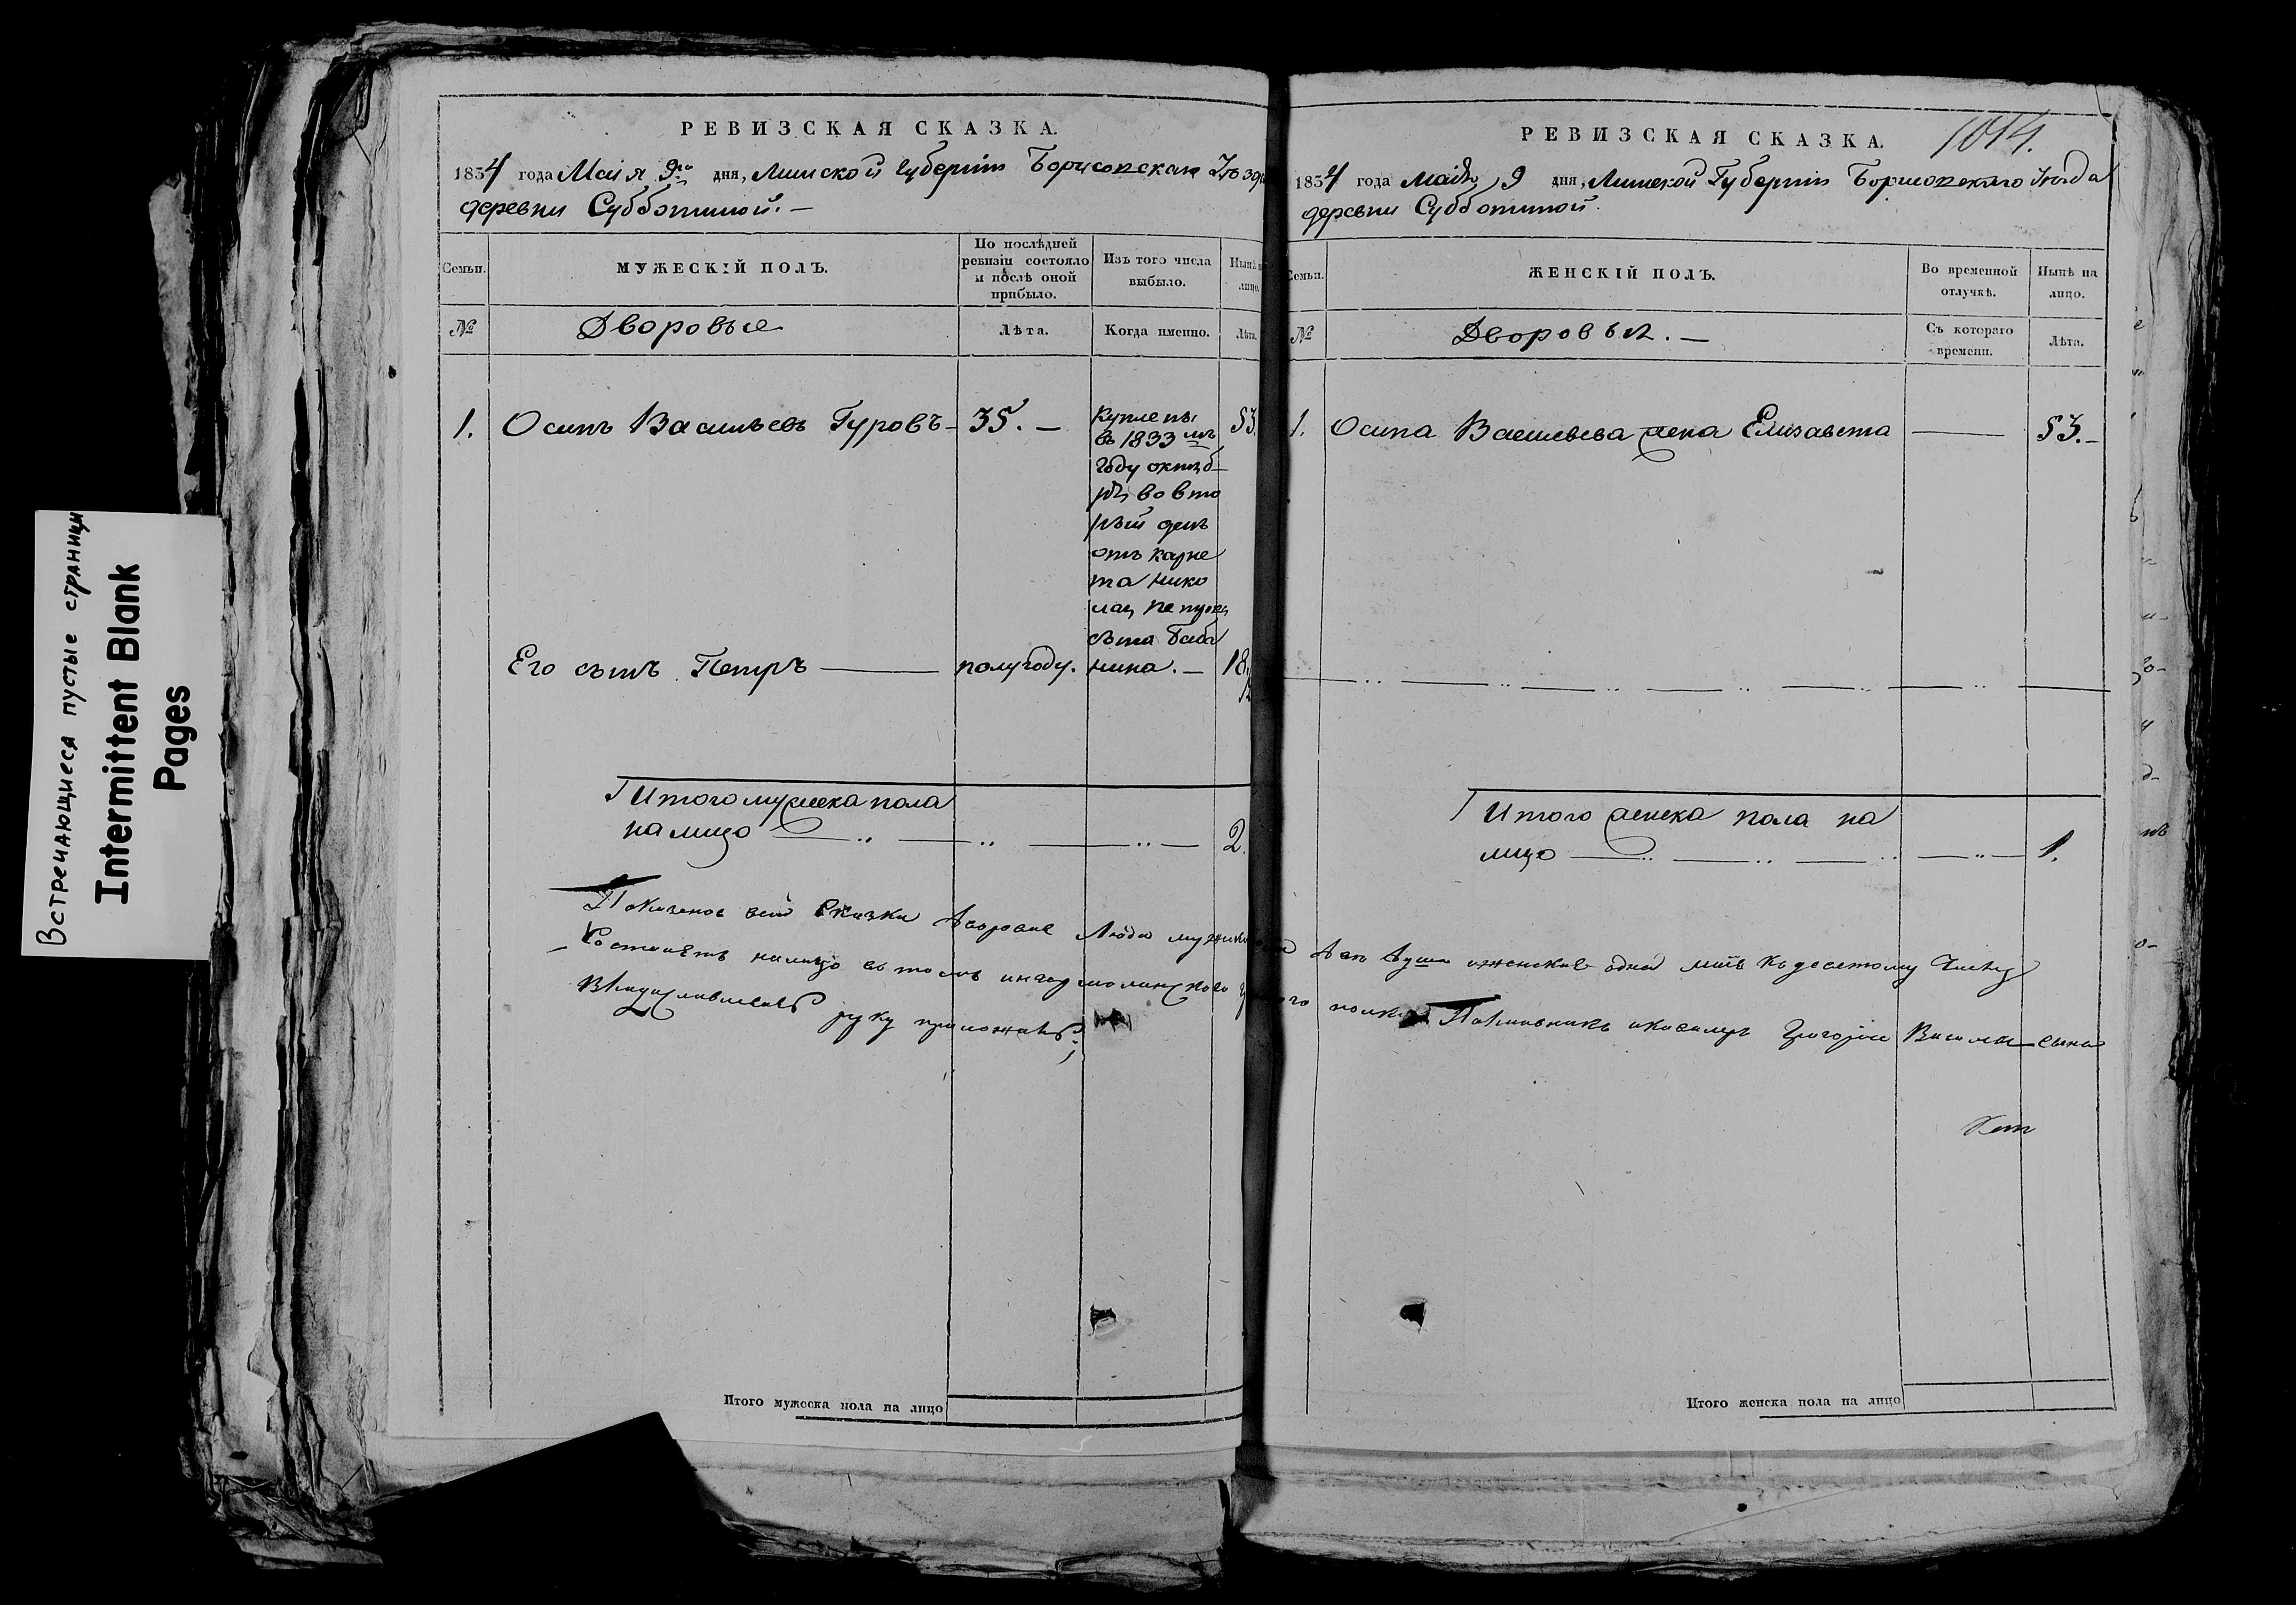 Встречающиеся пустые страницы
Intermittent Blank
Pages
РЕВИЗСКАЯ СКАЗКА.
1834 года Маiя 9го дня, Минской Губернiи Борисовскаго Уѣзда
деревни Субботиной. —
Семьи.
МУЖЕСКIЙ ПОЛЪ.
По послѣдней ревизiи состояло и послѣ оной прибыло.
Изъ того числа выбыло.
Нынѣ на лицо.
№
Дворовые
Лѣта.
Когда именно.
Лѣта.
1. Осипъ Васильевъ Гуровъ — 35. — 53.
куплены
въ 1833мъ
году октяб-
ря во вто
рый день
отъ карне
та Нико
лая
сына Баба
нина. —
Его сынъ Петръ — полугоду. 18 1/2
Итого мужеска пола
на лицо — 2.
Итого мужеска пола на лицо
РЕВИЗСКАЯ СКАЗКА.
1014.
1834 года Маiя 9 дня, Минской Губернiи Борисовскаго Уѣзда
деревни Субботиной.
Семьи.
ЖЕНСКIЙ ПОЛЪ.
Во временной отлучкѣ.
Нынѣ на лицо.
№
Дворовыя. —
Съ котораго времени.
Лѣта.
1. Осипа Васильева жена Елизавета — 53. —
Итого женска пола на
лицо — 1.
Показаное сей Сказки дворовые Люди мужиска двѣ душы и женская одна
Состоитъ налицо полка Полковникъ и кавалеръ Григорiй сынъ
руку приложилъ
Итого женска пола на лицо